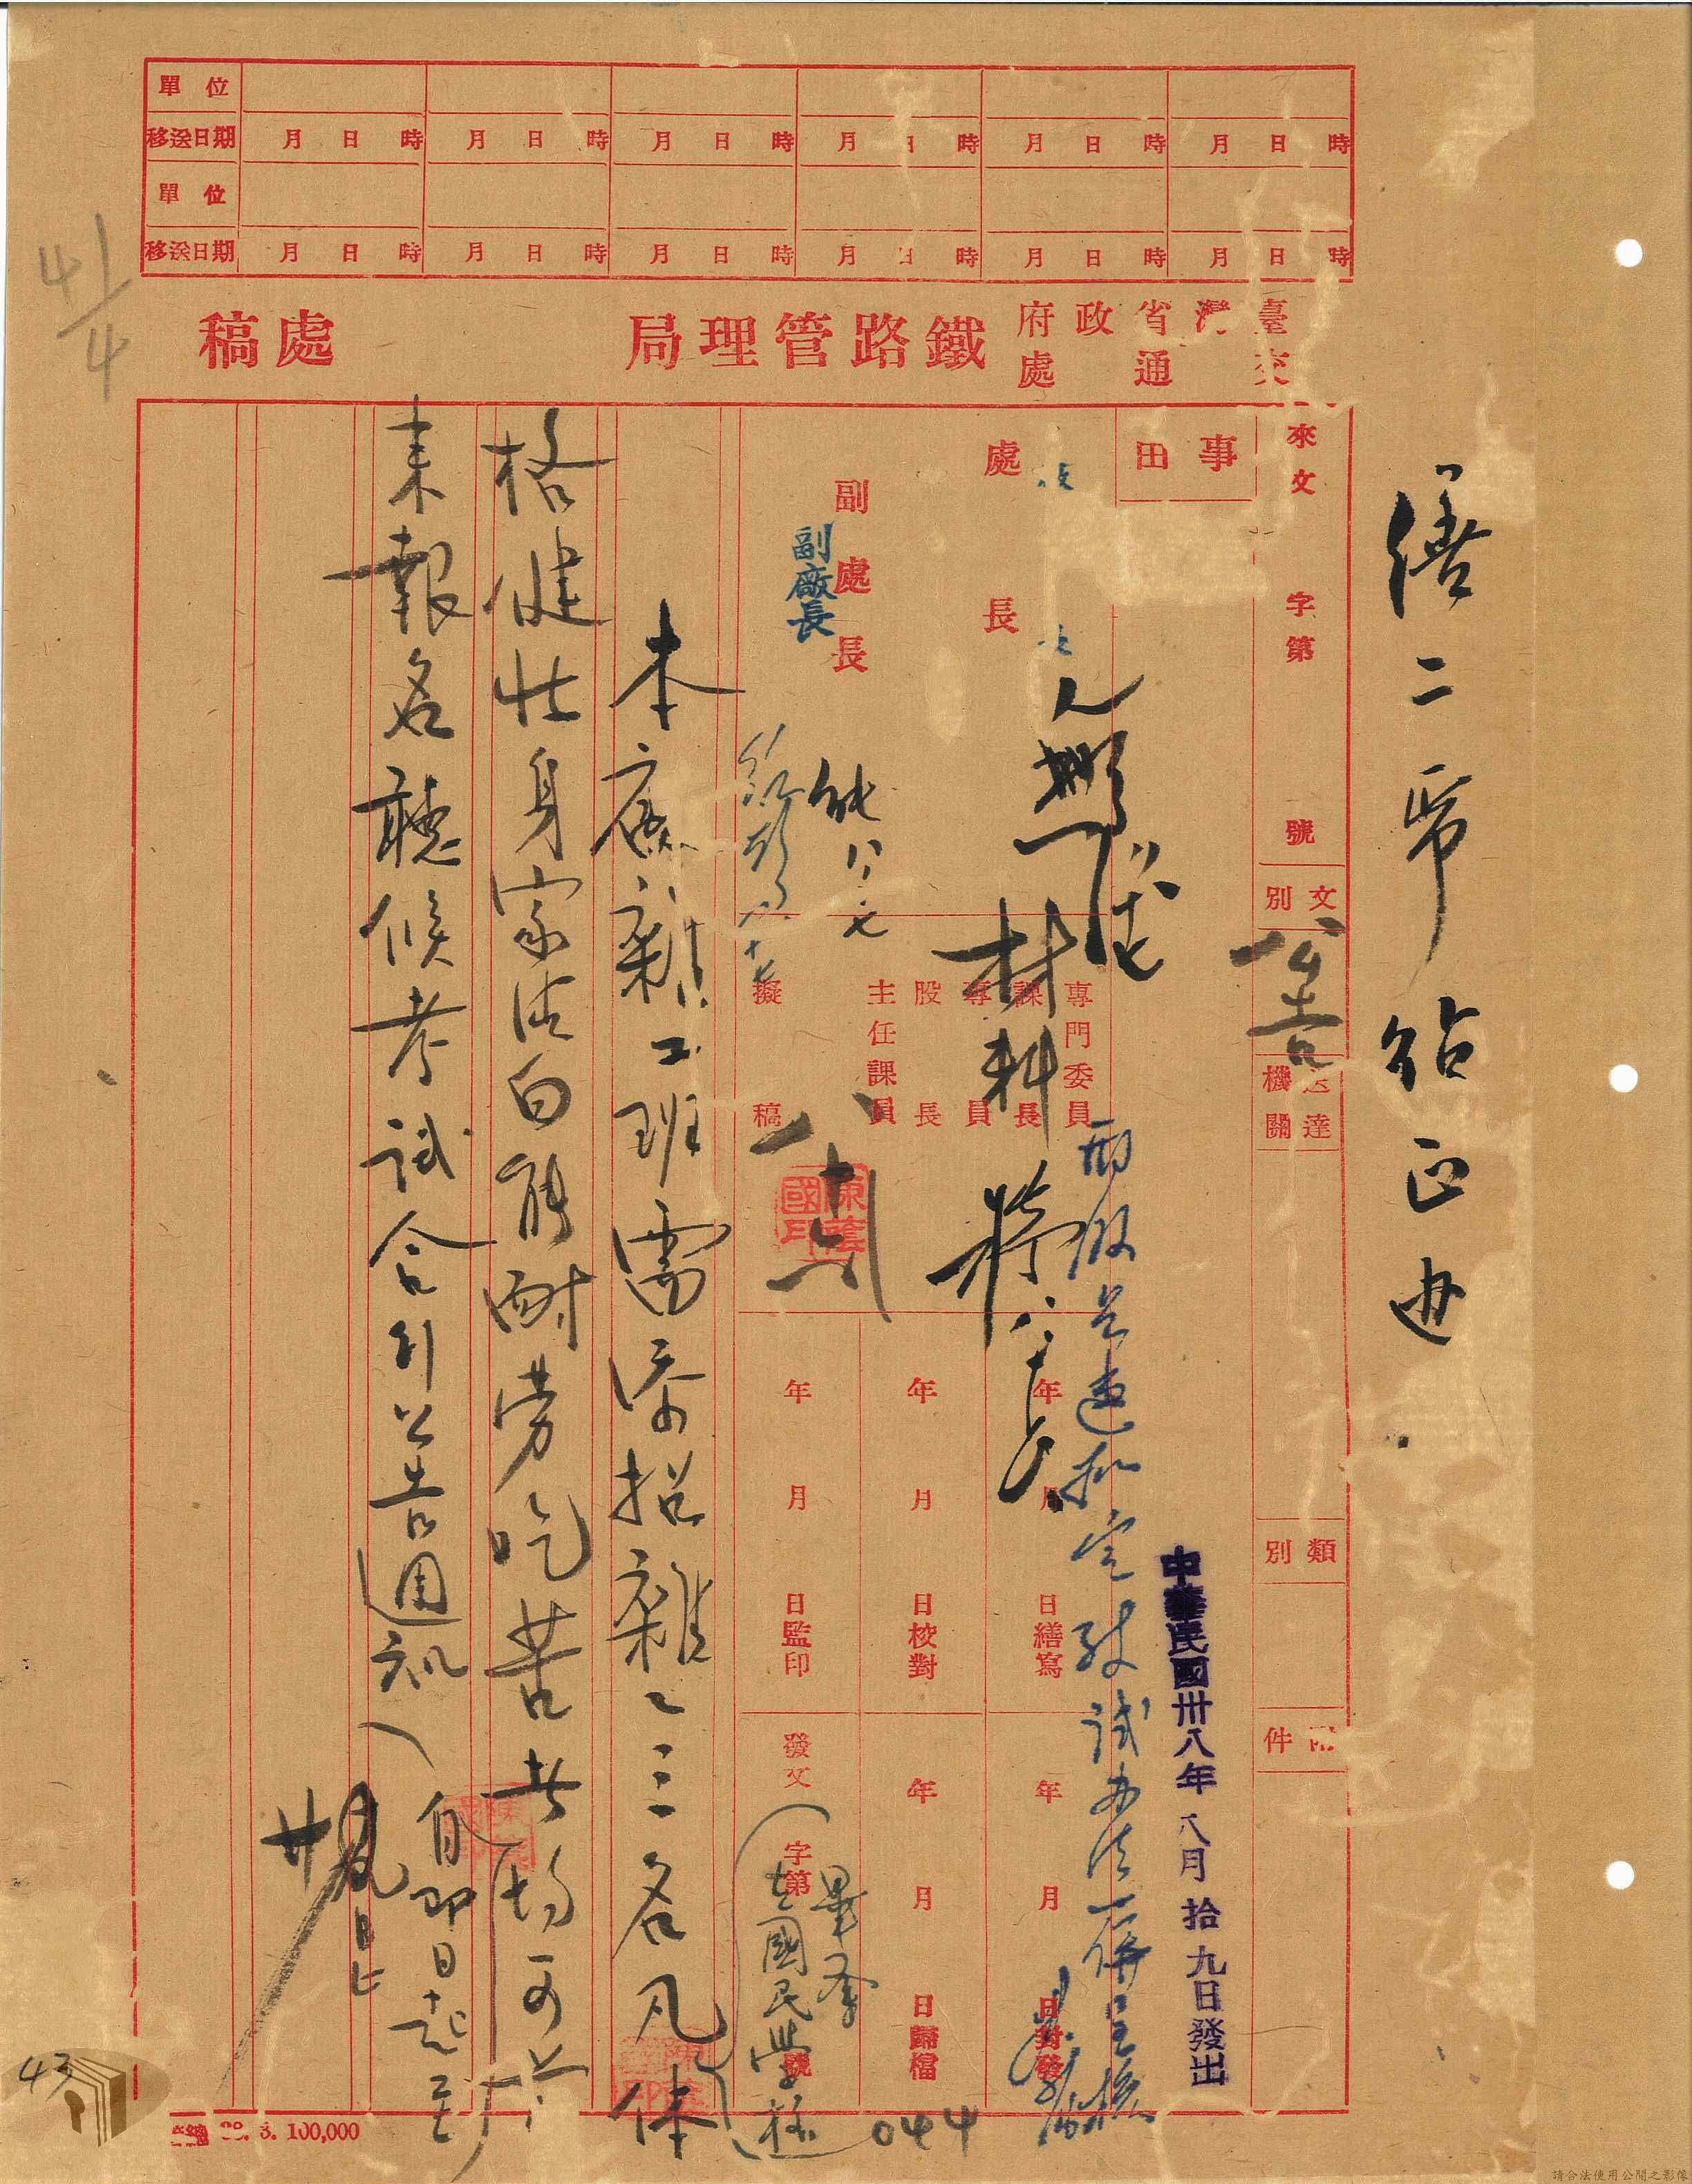 單位
移送日期 月 日 時 月 日 時 月 日 時 月 日 時 月 日 時 月 日 時
單位
移送日期 月 日 時 月 日 時 月 日 時 月 日 時 月 日 時 月 日 時
臺灣省政府
交通處
鐵路管理局
處稿
繕二帋貼正边
來文 字第 號
文別
公告
送達機關
類別
附件
事由
中華民國卅八年八月拾九日發出
處長
副處長
副廠長
材料
專門委員
課長
專員
股長
主任課員
擬稿
年 月 日繕寫
年 月 日校對
年 月 日監印
年 月 日對發
年 月 日歸檔
發文 字第 號
國民學校
畢業
本廠雜工班需添招雜工三名凡体
格健壯身家清白能耐勞吃苦者均可
來報名聽候考試合行公告週知
自即日起至
044
41/4
43
100,000
請合法使用公開之影像